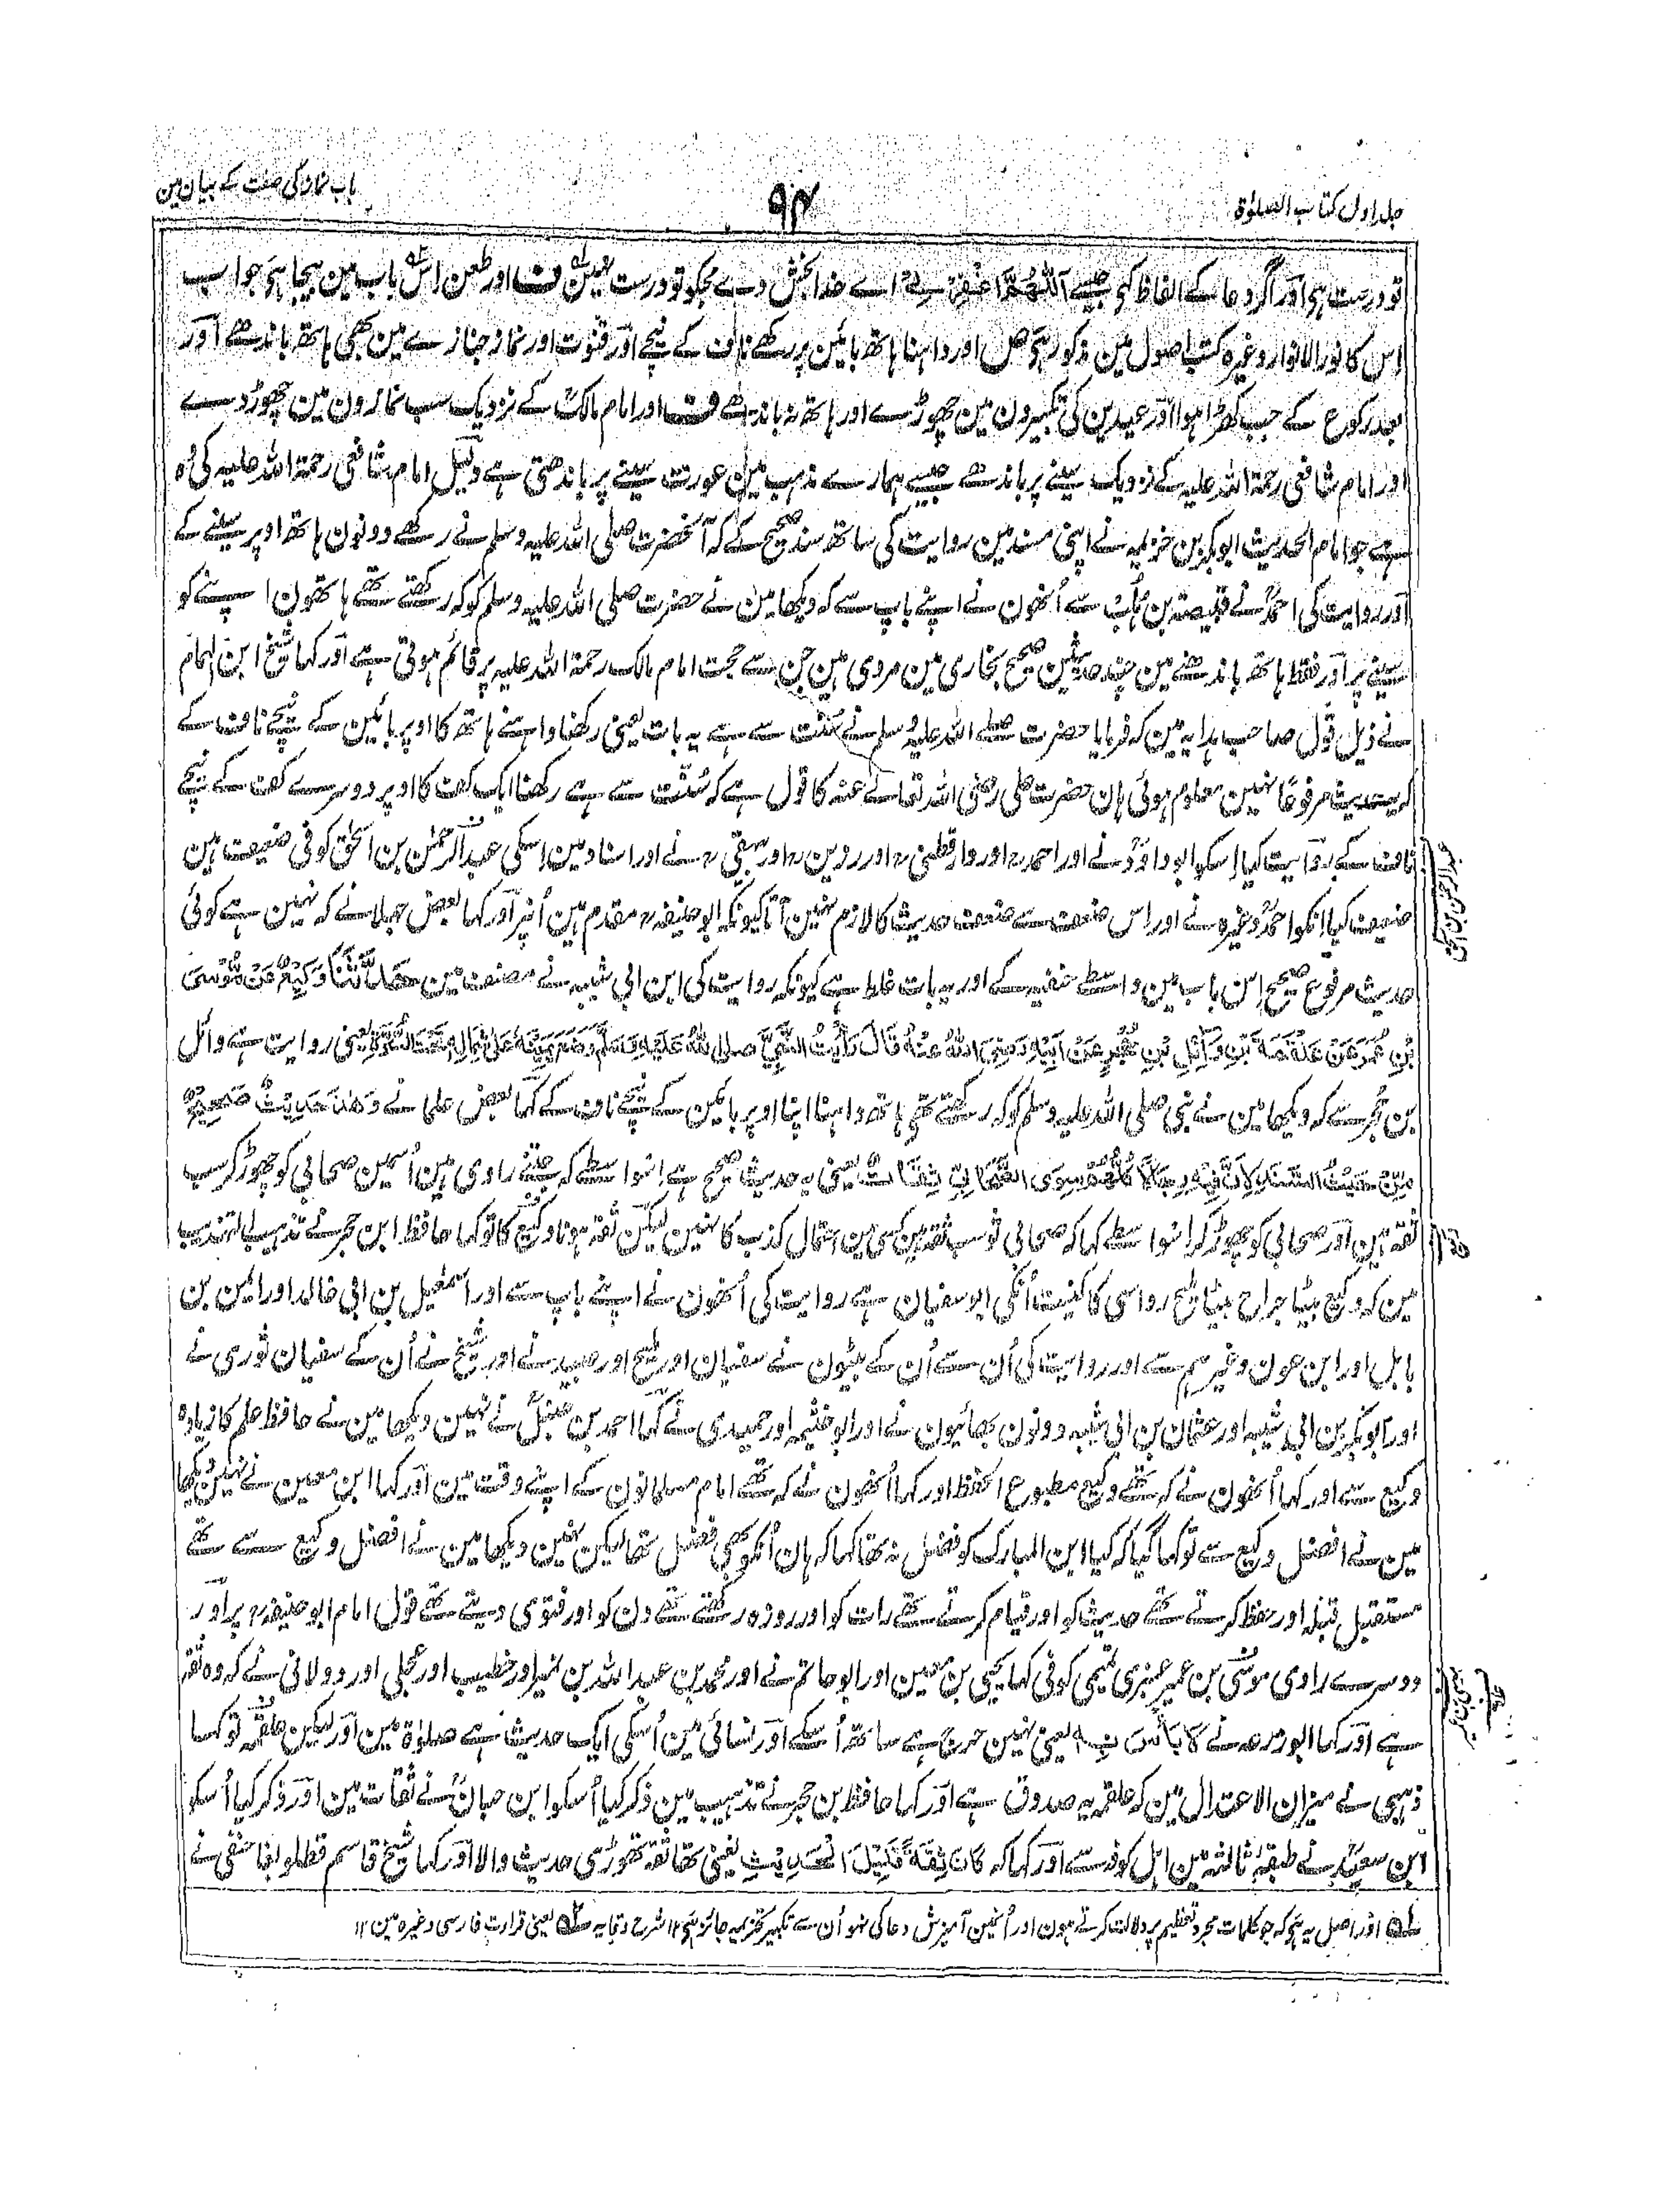 جلد اول کتاب الصلوٰۃ
۹۴
باب نماز کی صفت کے بیان مین
تو درست ہی اور اگر دعا کے الفاظ کہی جیسے اَللّٰهُمَّ اغْفِرْ لِیْ اے خدا بخش دے مجکو تو درست نہین ف اور طعن اس باب مین بیجا ہی جواب
اس کا نور الانوار وغیرہ کتب اصول مین مذکور ہی ص اور داہنا ہاتھ بائین پر رکھے ناف کے نیچے اور قنوت اور نماز جنازے مین بھی ہاتھ باندھے اور
بعد رکوع کے جب کھڑا ہوا اور عیدین کی تکبیرون مین چھوڑے اور ہاتھ نہ باندھے ف اور امام مالک کے نزدیک سب نمازون مین چھوڑ دے
اور امام شافعی رحمۃ اللہ علیہ کے نزدیک سینے پر باندھے جیسے ہمارے مذہب مین عورت سینے پر باندھتی ہے دلیل امام شافعی رحمۃ اللہ علیہ کی وہ
ہے جو امام الحدیث ابوبکر بن خزیمہ نے اپنی مسند مین روایت کی ساتھ سند صحیح کے کہ آنحضرت صلی اللہ علیہ وسلم نے رکھے دونون ہاتھ اوپر سینے کے
اور روایت کی احمد نے قبیصہ بن ہلب سے اُنھون نے اپنے باپ سے کہ دیکھا مین نے حضرت صلی اللہ علیہ وسلم کو کہ رکھتے تھے ہاتھون اپنے کو
سینے پر اور فقط ہاتھ باندھنے مین چند حدیثین صحیح بخاری مین مروی ہین جن سے حجت امام مالک رحمۃ اللہ علیہ پر قائم ہوتی ہے اور کہا شیخ ابن الہمام
نے ذیل قول صاحب ہدایہ مین کہ فرمایا حضرت صلے اللہ علیہ وسلم نے سُنّت سے ہے یہ بات یعنی رکھنا داہنے ہاتھ کا اوپر بائین کے نیچے ناف کے
کہ یہ حدیث مرفوعًا نہین معلوم ہوئی ہان حضرت علی رضی اللہ تعالے عنہ کا قول ہے کہ سُنّت سے ہے رکھنا ایک کف کا اوپر دوسرے کف کے نیچے
ناف کے روایت کیا اِسکو ابو داؤد نے اور احمد اور دارقطنی اور رزین اور بیہقی نے اور اسناد مین اِسکی عبد الرحمٰن بن اسحٰق کوفی ضعیف ہین
ضعیف کیا انکو احمد وغیرہ نے اور اس ضعف سے ضعف حدیث کا لازم نہین آتا کیونکہ ابو حنیفہ مقدم ہین اُنپر اور کہا بعض جہلا نے کہ نہین ہے کوئی
حدیث مرفوع صحیح اِس باب مین واسطے حنفیہ کے اور یہ بات غلط ہے کیونکہ روایت کی ابن ابی شیبہ نے مصنف مین حَدَّثَنَا وَكِيْعٌ عَنْ مُوْسَى
بْنِ عُمَيْرٍ عَنْ عَلْقَمَةَ بْنِ وَائِلِ بْنِ حُجْرٍ عَنْ اَبِيْهِ رَضِيَ اللهُ عَنْهُ قَالَ رَأَيْتُ النَّبِيَّ صلى اللهُ عَلَيْهِ وَسَلَّمَ وَضَعَ يَمِيْنَهُ عَلٰى شِمَالِهٖ تَحْتَ السُّرَّةِ یعنی روایت ہے وائل
بن حجر سے کہ دیکھا مین نے نبی صلی اللہ علیہ وسلم کو کہ رکھتے تھے ہاتھ داہنا اپنا اوپر بائین کے نیچے ناف کے کہا بعض علما نے وَهٰذَا حَدِيْثٌ صَحِيْحٌ
مِنْ حَيْثُ السَّنَدِ لِاَنَّ فِيْهِ رِجَالًا كُلُّهُمْ سِوَى الصَّحَابِيِّ ثِقَاتٌ یعنی یہ حدیث صحیح ہے اسواسطے کہ جتنے راوی ہین اُسمین صحابی کو چھوڑ کر سب
ثقہ ہین اور صحابی کو چھوڑ کر اسواسطے کہا کہ صحابی تو سب ثقہ ہین کسی مین احتمال کذب کا نہین لیکن ثقہ ہونا وکیع کا تو کہا حافظ ابن حجر نے تذہیب التہذیب
مین کہ وکیع بیٹا جراح بیٹا ملیح رواسی کا کنیت اُنکی ابو سفیان ہے روایت کی اُنھون نے اپنے باپ سے اور اسمٰعیل بن ابی خالد اور ایمن بن
بابل اور ابن عون وغیرہم سے اور روایت کی اُن سے اُن کے بیٹون نے سفیان اور ملیح اور عبید نے اور شیخ نے اُن کے سفیان ثوری نے
اور ابوبکر بن ابی شیبہ اور عثمان بن ابی شیبہ دونون بھائیون نے اور ابو خثیمہ اور حمیدی نے کہا احمد بن حنبل نے نہین دیکھا مین نے حافظ علم کا زیادہ
وکیع سے اور کہا اُنھون نے کہ تھے وکیع مطبوع الحفظ اور کہا اُنھون نے کہ تھے امام مسلمانون کے اپنے وقت مین اور کہا ابن معین نے نہین دیکھا
مین نے افضل وکیع سے تو کہا گیا کہ کیا ابن المبارک کو فضل نہ تھا کہا کہ ہان اُنکو بھی فضل تھا لیکن نہین دیکھا مین نے افضل وکیع سے تھے
مستقبل قبلہ اور حفظ کرتے تھے حدیث کو اور قیام کرتے تھے رات کو اور روزہ رکھتے تھے دن کو اور فتویٰ دیتے تھے قول امام ابو حنیفہ پر اور
دوسرے راوی موسٰی بن عمیر عنبری تمیمی کوفی کہا یحیی بن معین اور ابو حاتم نے اور محمد بن عبد اللہ بن نمیر اور خطیب اور عجلی اور دولابی نے کہ وہ ثقہ
ہے اور کہا ابو زرعہ نے لَا بَأْسَ بِهٖ یعنی نہین حرج ہے ساتھ اُسکے اور نسائی مین اُسکی ایک حدیث ہے صلوٰۃ مین اور لیکن علقمہ تو کہا
ذہبی نے میزان الاعتدال مین کہ علقمہ یہ صدوق ہے اور کہا حافظ بن حجر نے تذہیب مین ذکر کیا اُسکو ابن حبان نے ثقات مین اور ذکر کیا اُسکو
ابن سعد نے طبقۂ ثالثہ مین اہل کوفہ سے اور کہا کہ كَانَ ثِقَةً قَلِيْلَ الْحَدِيْثِ یعنی تھا ثقہ تھوڑی حدیث والا اور کہا شیخ قاسم قطلوبغا حنفی نے
عبدالرحمن بن اسحق
وکیع
موسی بن عمیر
علقمہ
لہ اور اصل یہ ہی کہ جو کلمات مجرد تعظیم پر دلالت کرتے ہون اور اُنمین آمیزش دعا کی نہو اُن سے تکبیر تحریمہ جائز ہی ۱۲ شرح وقایہ ۲ہ یعنی قرارت فارسی وغیرہ مین ۱۲